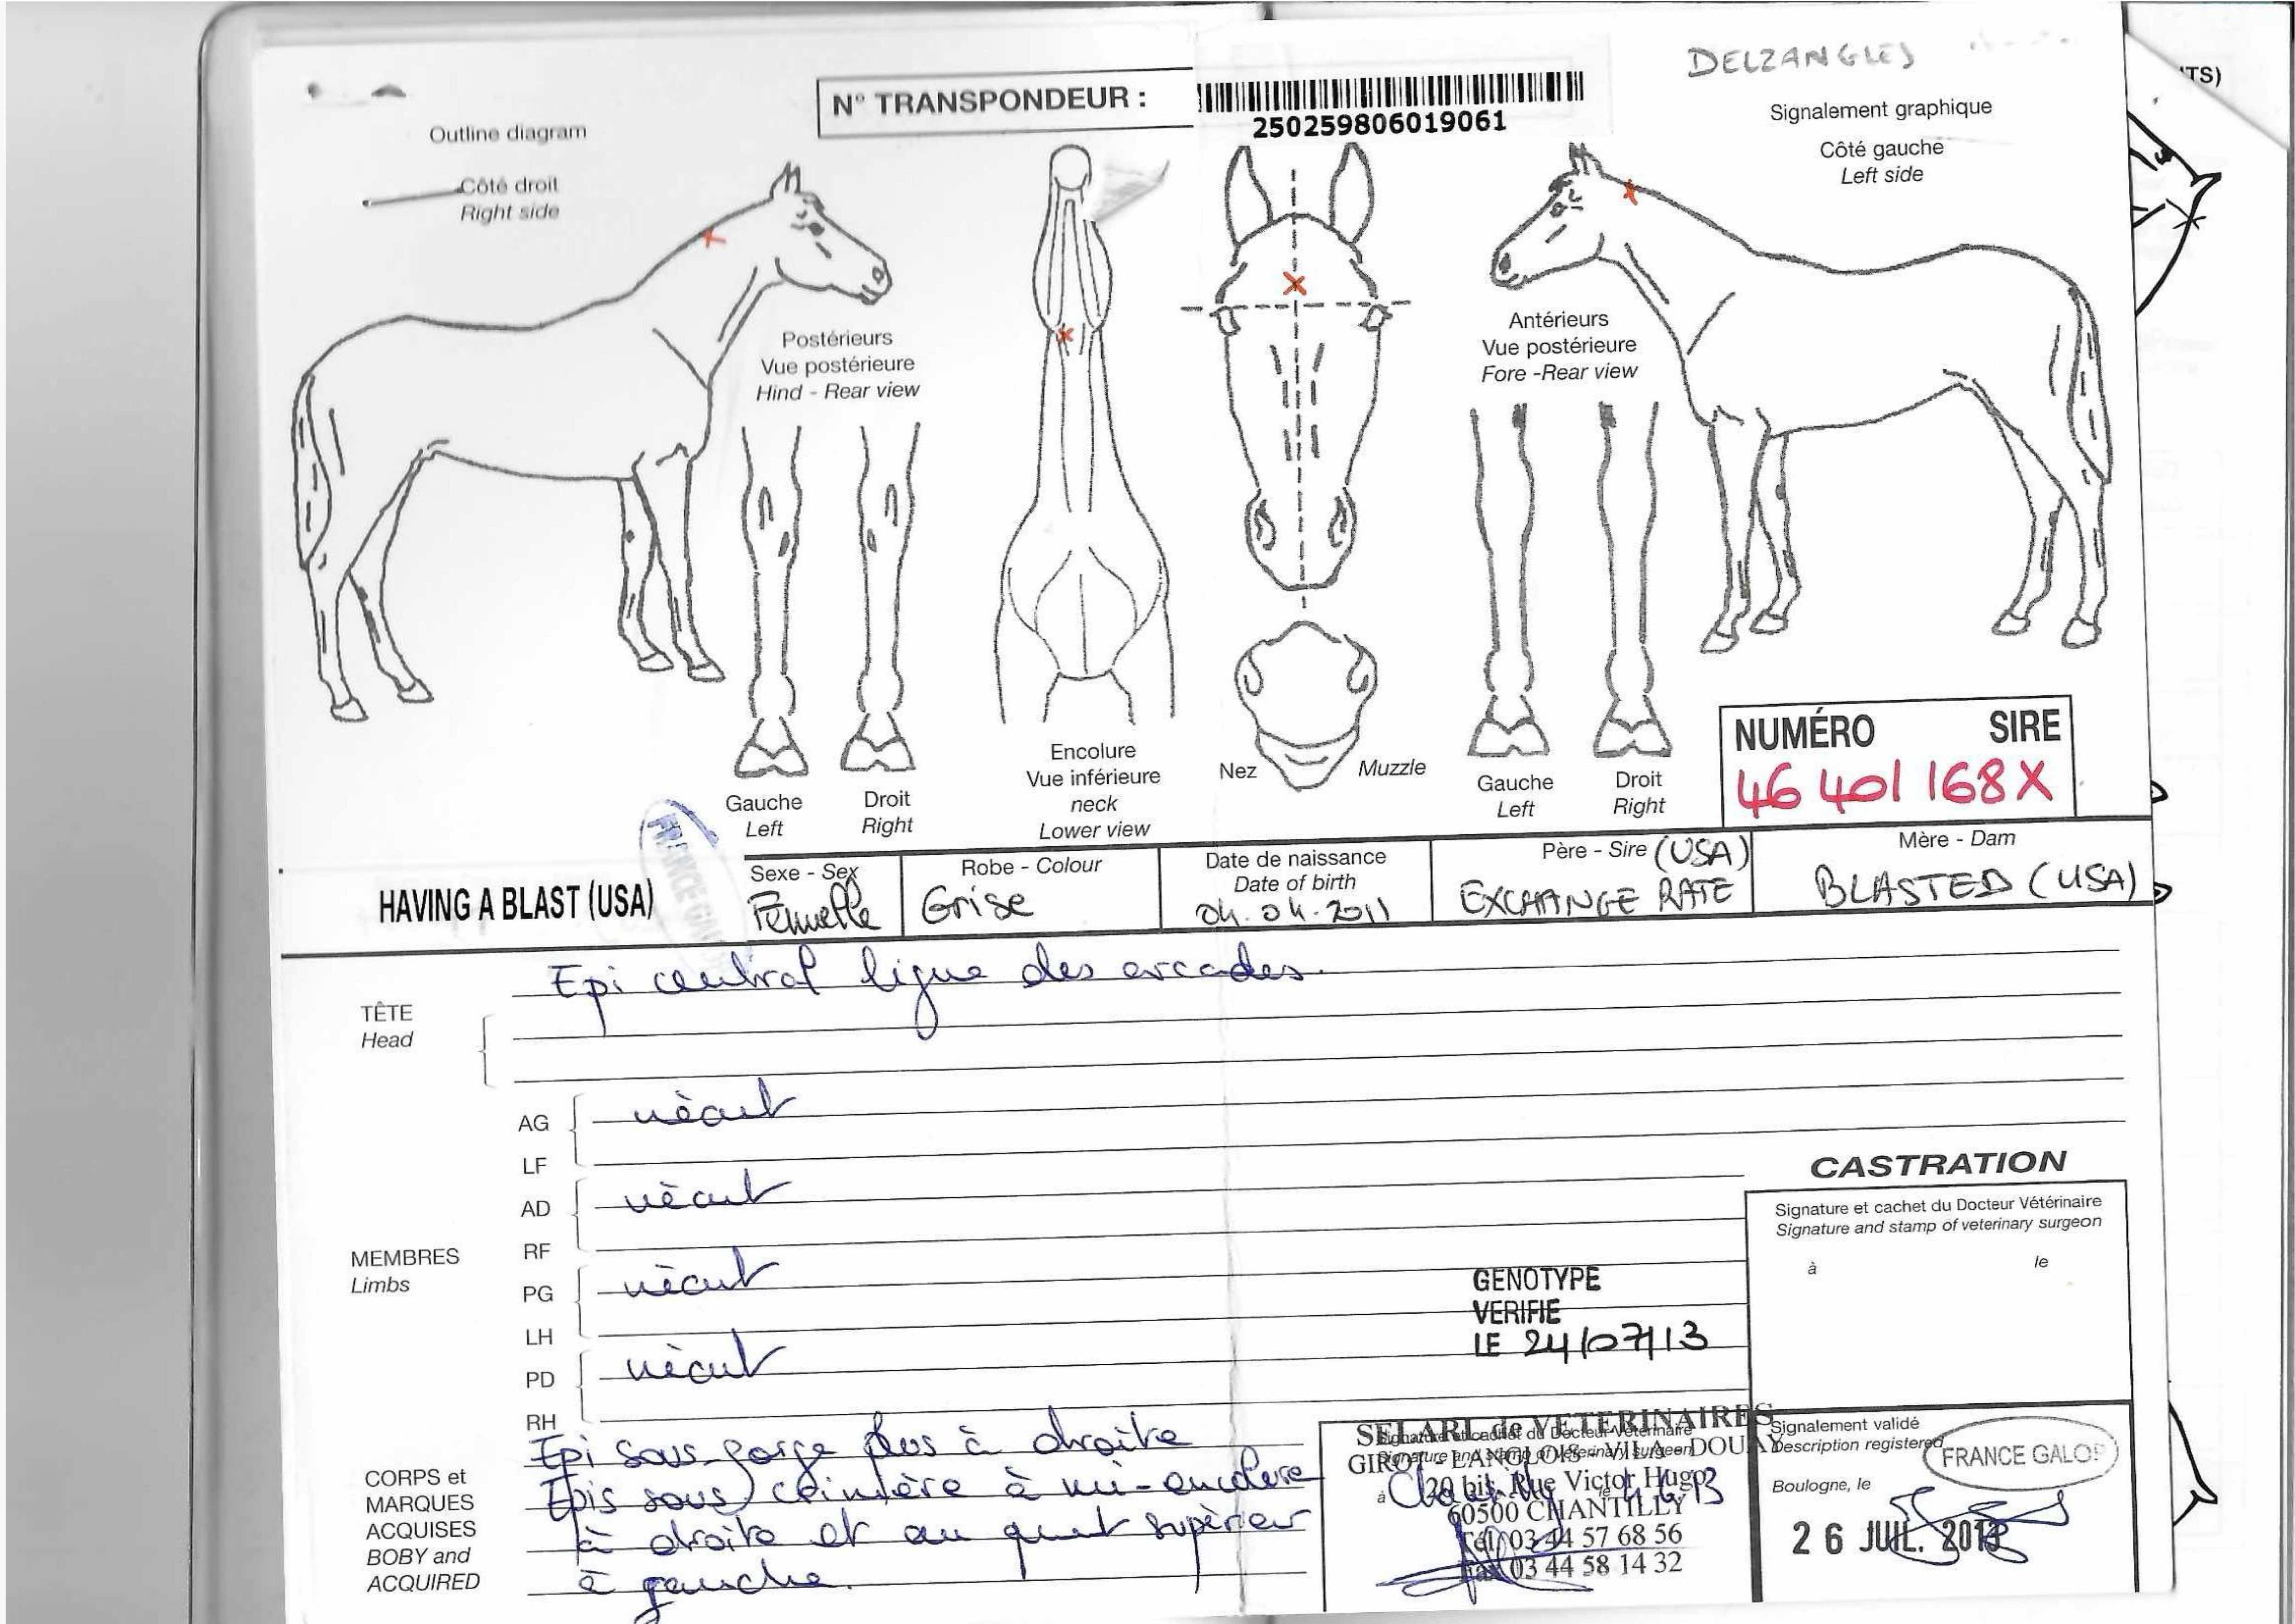 DELZANGLES
TS)
N° TRANSPONDEUR :
250259806019061
Outline diagram
Côté droit
Right side
Signalement graphique
Côté gauche
Left side
Postérieurs
Vue postérieure
Hind - Rear view
Antérieurs
Vue postérieure
Fore -Rear view
Gauche
Left
Droit
Right
Encolure
Vue inférieure
neck
Lower view
Nez
Muzzle
Gauche
Left
Droit
Right
NUMÉRO SIRE
46 401 168X
FRANCE GALOP
HAVING A BLAST (USA)
Sexe - Sex
Femelle
Robe - Colour
Grise
Date de naissance
Date of birth
04.04.2011
Père - Sire (USA)
EXCHANGE RATE
Mère - Dam
BLASTED (USA)
TÊTE
Head
Epi central ligne des arcades.
MEMBRES
Limbs
AG
LF
néant
AD
RF
néant
PG
LH
néant
PD
RH
néant
GENOTYPE
VERIFIE
LE 24/07/13
CASTRATION
Signature et cachet du Docteur Vétérinaire
Signature and stamp of veterinary surgeon
à le
CORPS et
MARQUES
ACQUISES
BOBY and
ACQUIRED
Epi sous-gorge plus à droite
Epis sous crinière à mi-encolure
à droite et au quart supérieur
à gauche.
SELARL de VETERINAIRES
Signature et cachet du Docteur Vétérinaire
Signature and stamp of veterinary surgeon
GIROT - LANGLOIS - VILA - DOUAY
20 bis, Rue Victor Hugo
à Chantilly le
60500 CHANTILLY
Tél. 03 44 57 68 56
Fax 03 44 58 14 32
Signalement validé
Description registered
FRANCE GALOP
Boulogne, le
26 JUIL. 2013